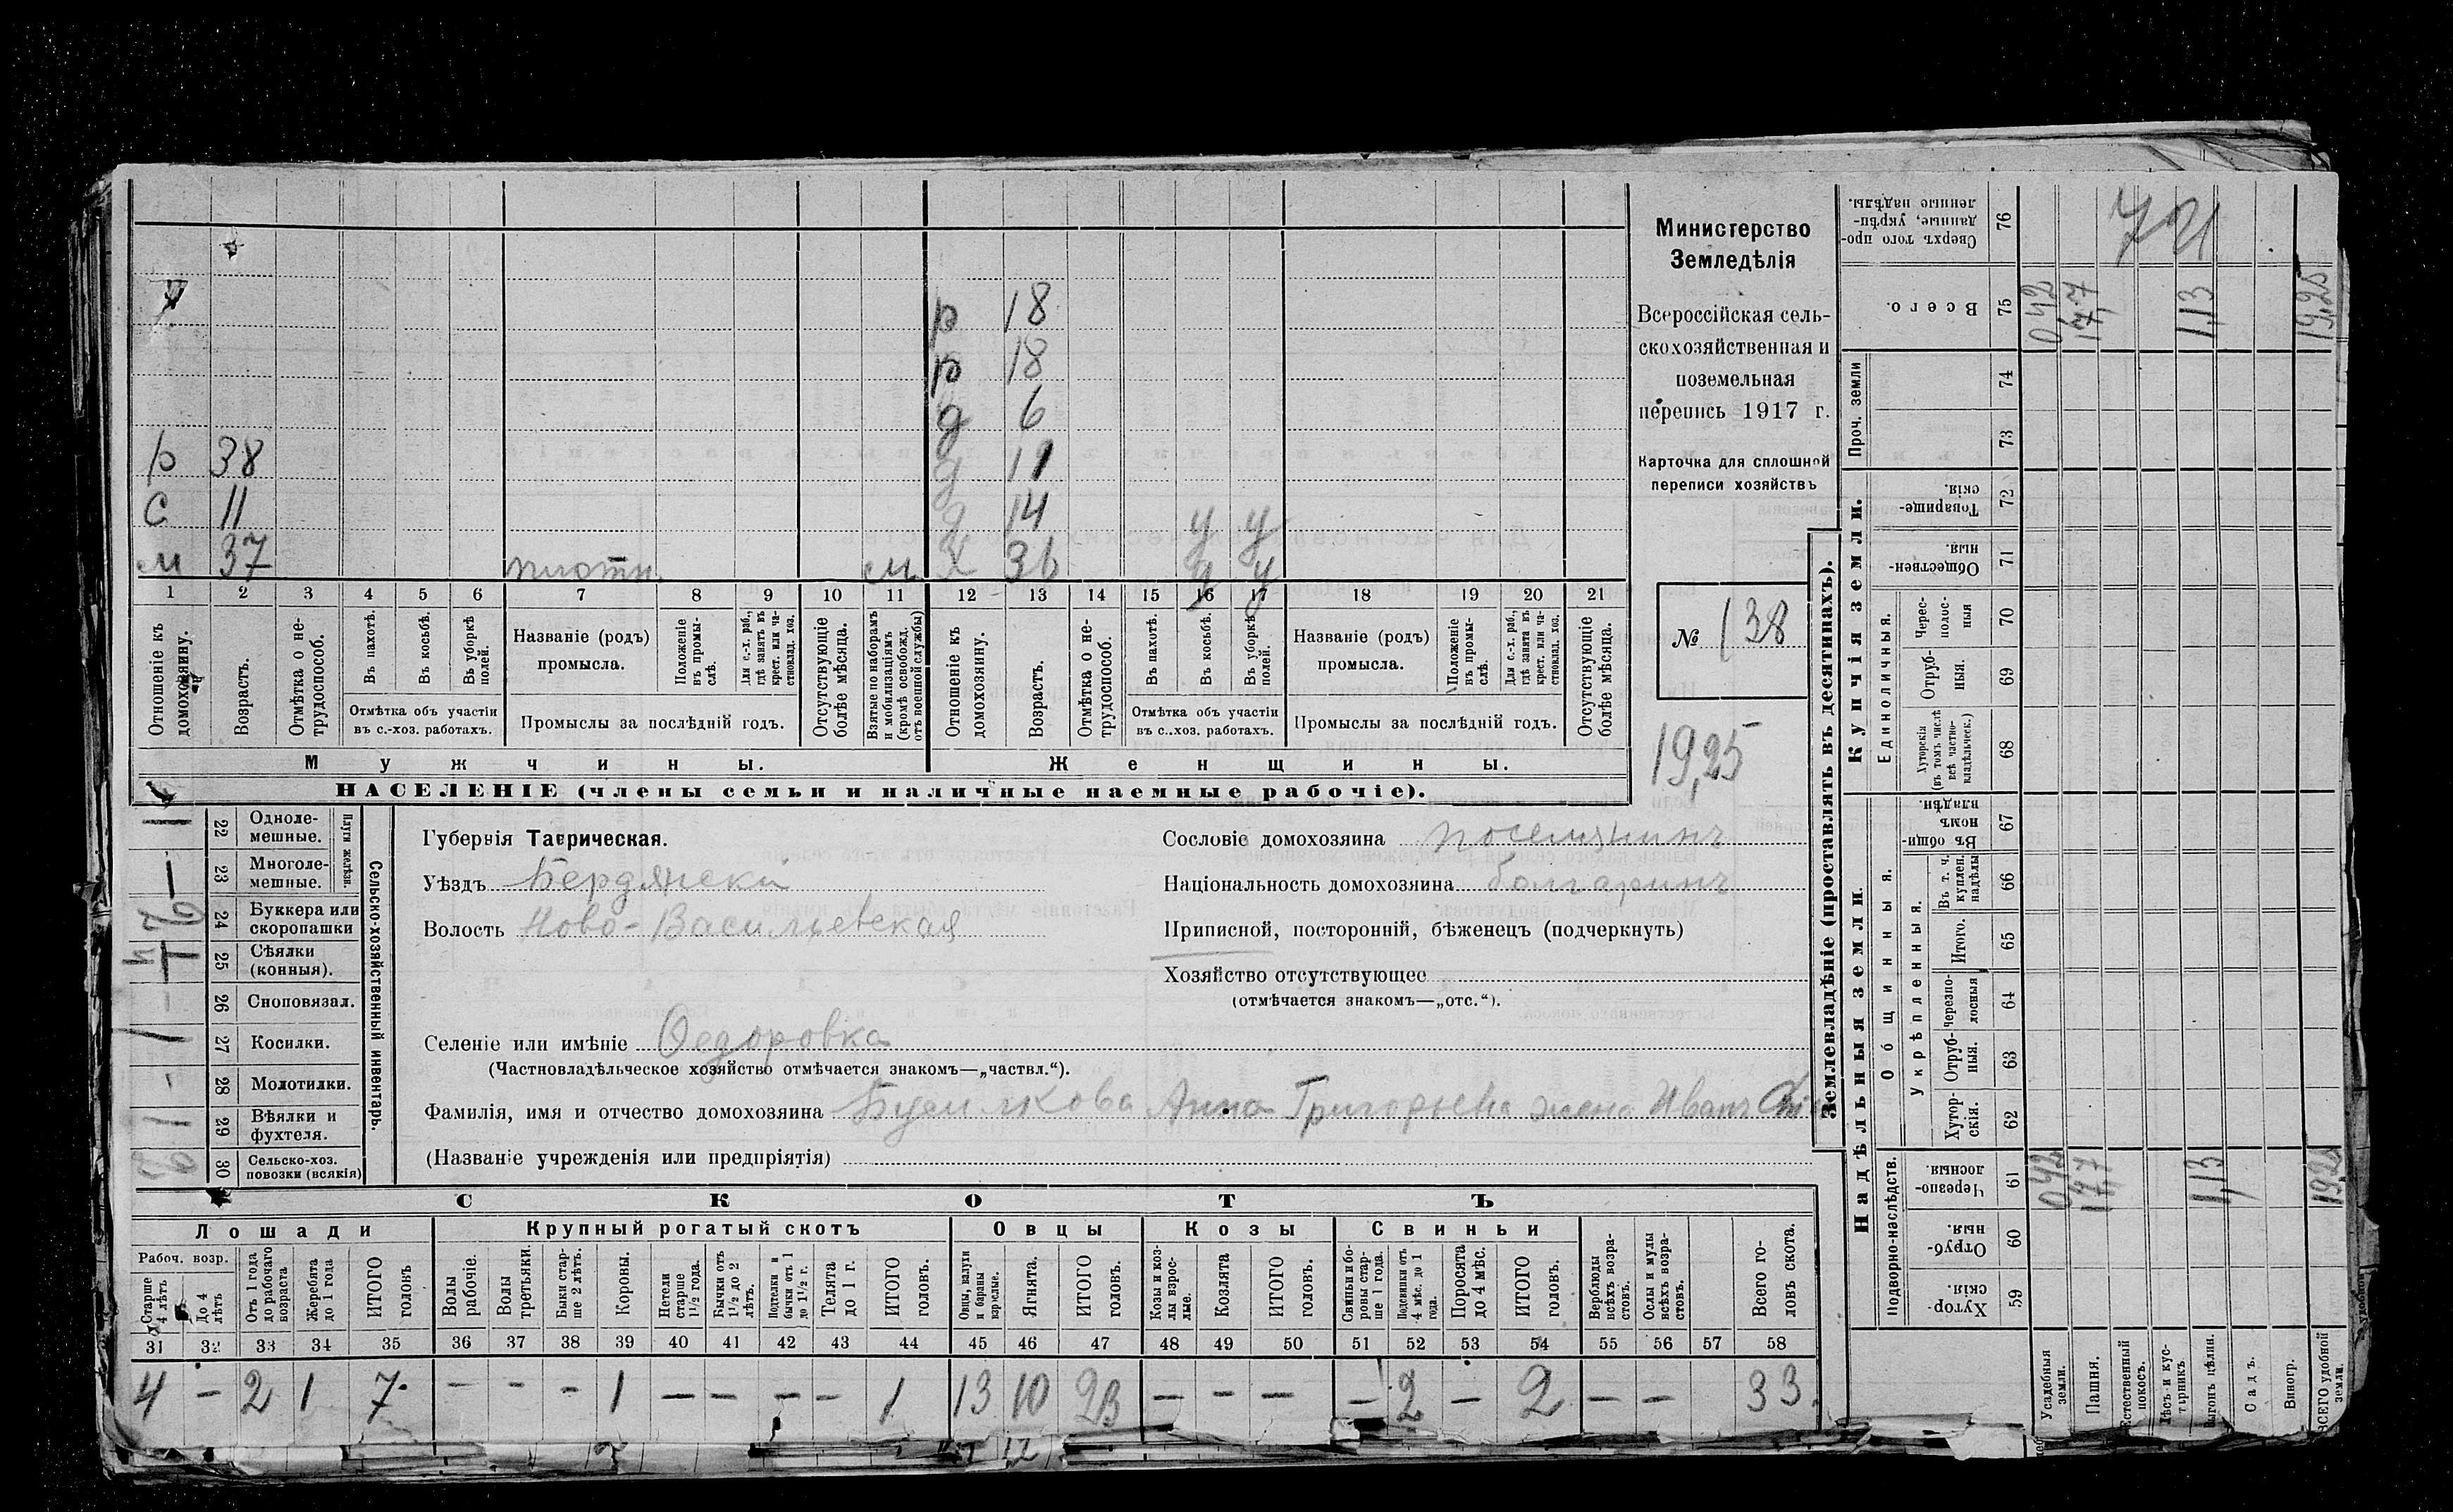 р 18
р 18
д 6
р 38 д 11
с 11 д 14 у у
м 37 плотн. м х 36 у у
1 2 3 4 5 6 7 8 9 10 11 12 13 14 15 16 17 18 19 20 21
Отношеніе къ домохозяину.
Возрастъ.
Отмѣтка о нетрудоспособ.
Въ пахотѣ.
Въ косьбѣ.
Въ уборкѣ полей.
Отмѣтка объ участіи въ с.-хоз. работахъ.
Названіе (родъ) промысла.
Положеніе въ промыслѣ.
Для с.-х. раб., гдѣ занятъ въ крест. или частновлад. хоз.
Промыслы за послѣдній годъ.
Отсутствующіе болѣе мѣсяца.
Взятые по наборамъ и мобилизаціямъ (кромѣ освобожд. отъ военной службы)
Отношеніе къ домохозяину.
Возрастъ.
Отмѣтка о нетрудоспособ.
Въ пахотѣ.
Въ косьбѣ.
Въ уборкѣ полей.
Отмѣтка объ участіи въ с..хоз. работахъ.
Названіе (родъ) промысла.
Положеніе въ промыслѣ.
Для с.-х. раб., гдѣ занята въ крест. или частновлад. хоз.
Промыслы за послѣдній годъ.
Отсутствующіе болѣе мѣсяца.
Мужчины. Женщины.
НАСЕЛЕНІЕ (члены семьи и наличные наемные рабочіе).
Министерство
Земледѣлія
Всероссійская сель-
скохозяйственная и
поземельная
перепись 1917 г.
Карточка для сплошной
переписи хозяйствъ
№ 138
19,25
Сельско-хозяйственный инвентарь.
Плуги желѣзн.
22 Однолемешные.
23 Многолемешные.
24 Буккера или скоропашки
25 Сѣялки (конныя).
26 Сноповязал.
27 Косилки. 1
28 Молотилки. -
29 Вѣялки и фухтеля. 1
30 Сельско-хоз. повозки (всякія)
Губернія Таврическая.
Уѣздъ Бердянски
Волость Ново-Васильевская
Сословіе домохозяина поселянинъ
Національность домохозяина болгаринъ
Приписной, посторонній, бѣженецъ (подчеркнуть)
Хозяйство отсутствующее
(отмѣчается знакомъ—„отс.“).
Селеніе или имѣніе Федоровка
(Частновладѣльческое хозяйство отмѣчается знакомъ—„частвл.“).
Фамилія, имя и отчество домохозяина Анна Григорьевна жена Иванъ
(Названіе учрежденія или предпріятія)
СКОТЪ
Лошади Крупный рогатый скотъ Овцы Козы Свиньи
Рабоч. возр.
Старше 4 лѣтъ
До 4 лѣтъ
Отъ 1 года до рабочаго возраста
Жеребята до 1 года
ИТОГО головъ
Волы рабочіе.
Волы третьяки.
Быки старше 2 лѣтъ.
Коровы.
Нетели старше 1½ года.
Бычки отъ 1½ до 2 лѣтъ.
Подтелки и бычки отъ 1 до 1½ г.
Телята до 1 г.
ИТОГО головъ.
Овцы, валухи и бараны взрослые.
Ягнята.
ИТОГО головъ.
Козы и козлы взрослые.
Козлята
ИТОГО головъ.
Свиньи и боровы старше 1 года.
Подсвинки отъ 4 мѣс. до 1 года.
Поросята до 4 мѣс.
ИТОГО головъ.
Верблюды всѣхъ возрастовъ.
Ослы и мулы всѣхъ возрастовъ.
Всего головъ скота.
31 32 33 34 35 36 37 38 39 40 41 42 43 44 45 46 47 48 49 50 51 52 53 54 55 56 57 58
4 - 2 1 7 - - - 1 - - - - 1 13 10 23 - - - - 2 - 2 - - 33
Землевладѣніе (проставлять въ десятинахъ).
Надѣльныя земли. Купчія земли. Проч. земли
Подворно-наслѣдств.
Общинныя.
Укрѣпленныя.
Единоличныя.
Хуторскія 59
Отрубныя. 60
Черезполосныя. 61
Хуторскія. 62
Отрубныя. 63
Черезполосныя 64
Итого. 65
Въ т. ч. куплен. надѣлы 66
Въ общинномъ владѣн. 67
Хуторскія (въ томъ числѣ всѣ частновладѣльческ.) 68
Отрубныя. 69
Черезполосныя 70
Общественныя 71
Товарищескія. 72
73
74
Всего. 75
Сверхъ того проданные, укрѣпленные надѣлы. 76
Усадебныя земли. 0,42 0,42
Пашня. 17,7 17,7
Естественный покосъ.
Лѣсъ и кустарникъ
Выгонъ цѣлин. 1,13 1,13
Садъ.
Виногр.
ВСЕГО удобной земли. 19,25 19,25